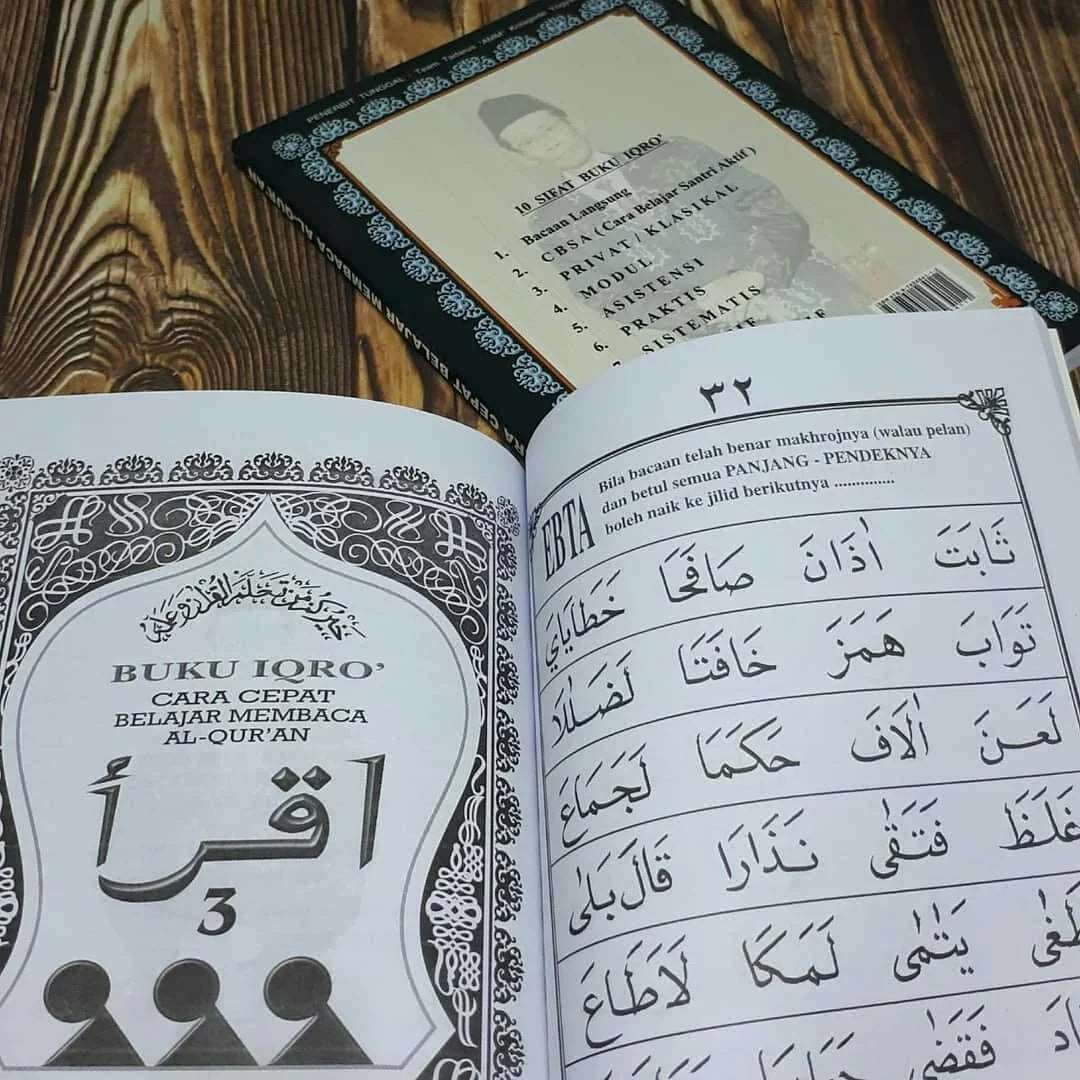 PENERBIT TUNGGAL : Team Tadarus "AMM"
10 SIFAT BUKU IQRO'
1. Bacaan Langsung
2. CBSA ( Cara Belajar Santri Aktif )
3. PRIVAT / KLASIKAL
4. MODUL
5. ASISTENSI
6. PRAKTIS
SISTEMATIS
CEPAT BELAJAR MEMBACA
BUKU IQRO'
CARA CEPAT
BELAJAR MEMBACA
AL-QUR'AN
اقرأ
3
٣٢
EBTA
Bila bacaan telah benar makhrojnya (walau pelan)
dan betul semua PANJANG - PENDEKNYA
boleh naik ke jilid berikutnya ..............
ثَابَتَ اٰذَانَ صَافَحَا خَطَايَايَ
تَوَابَ هَمَزَ خَافَتَا لَضَلٰلَا
لَعَنَ اٰلَافَ حَكَمَا لَجَمَاعَ
غَلَظَ فَتَقٰى نَذَارَا قَالَ بَلٰى
يَتٰمٰى لَمَكَا لَاطَاعَ
فَقَضٰى